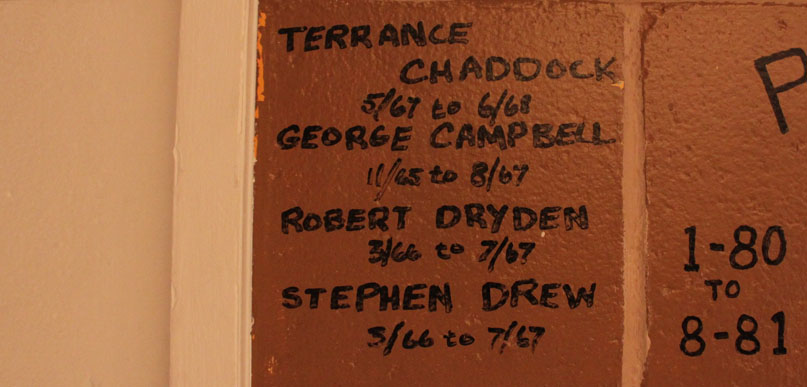 TERRANCE
CHADDOCK
5/67 to 6/68
GEORGE CAMPBELL
11/65 to 8/67
ROBERT DRYDEN
3/66 to 7/67
STEPHEN DREW
5/66 to 7/67
P
1-80
TO
8-81